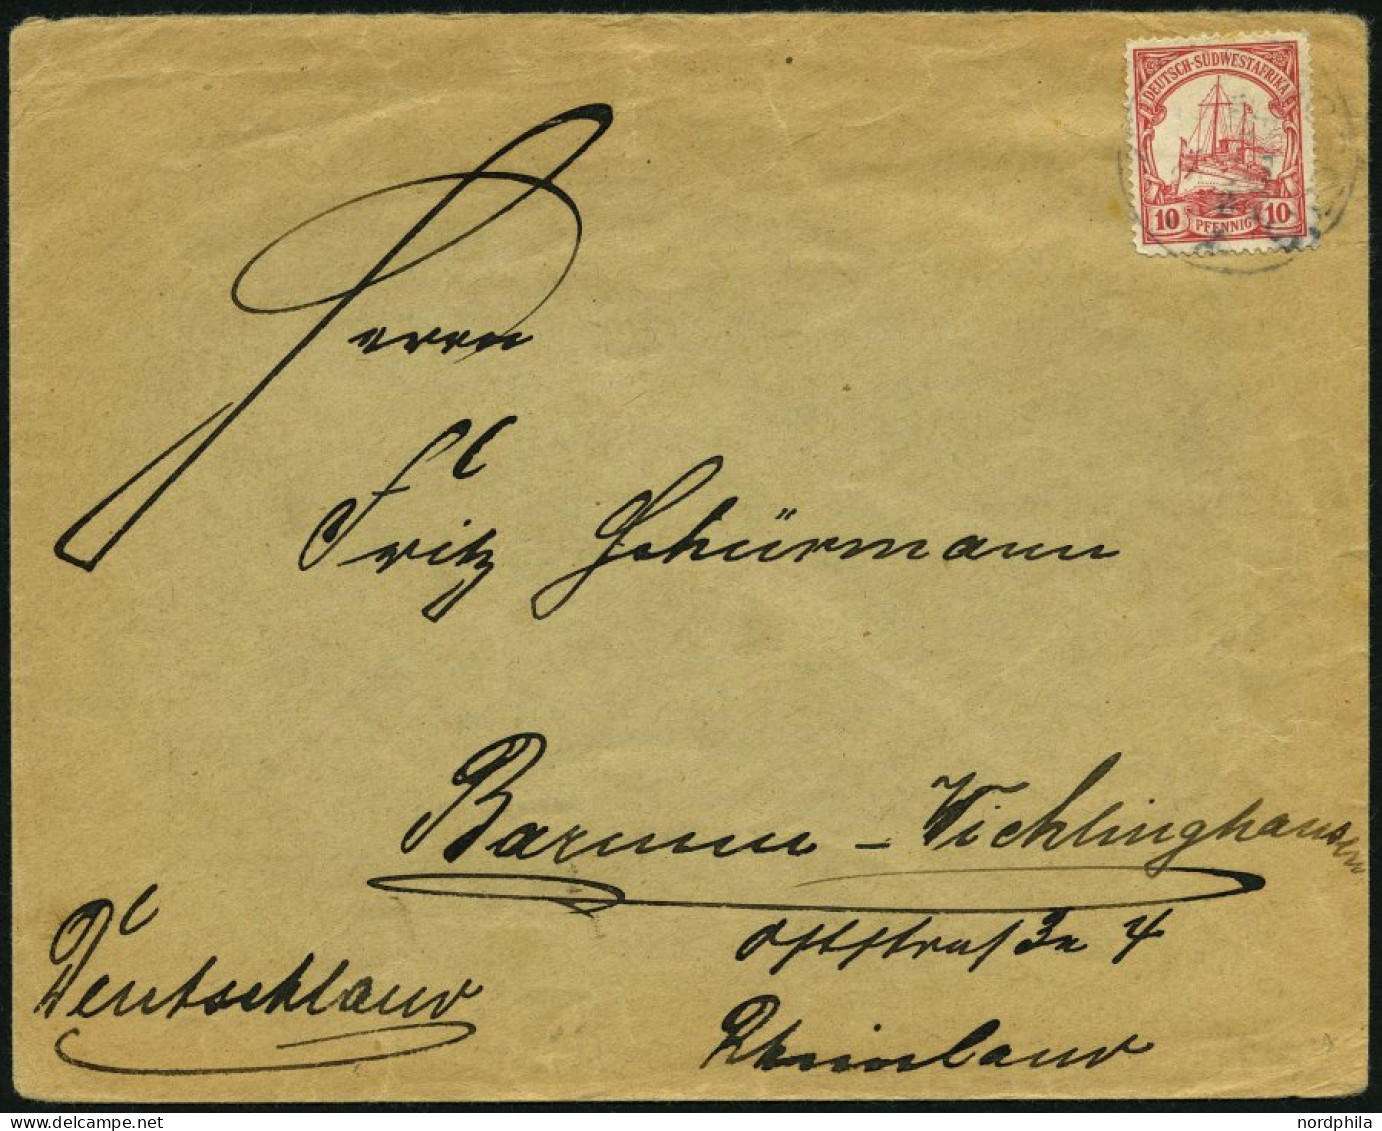 DEUTSCH-SÜDWESTAFRIKA
10 PFENNIG 10
Herrn
Fritz Schürmann
Barmen - Wichlinghausen
Oststraße 4
Deutschland
Rheinland
nordphila